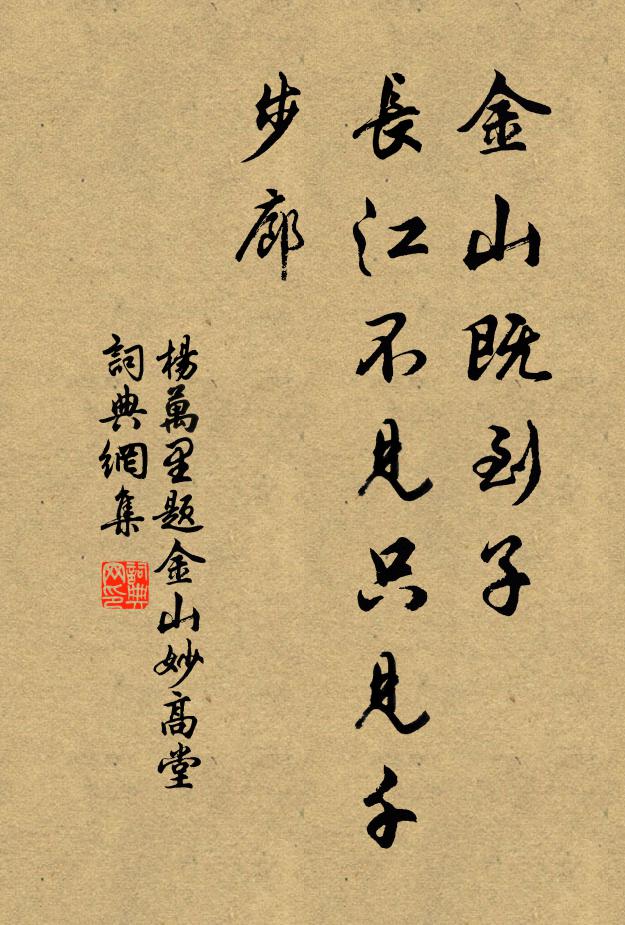 金山既到子
長江不見只見千
步廊
楊萬里題金山妙高堂
詞典網集
詞典網印